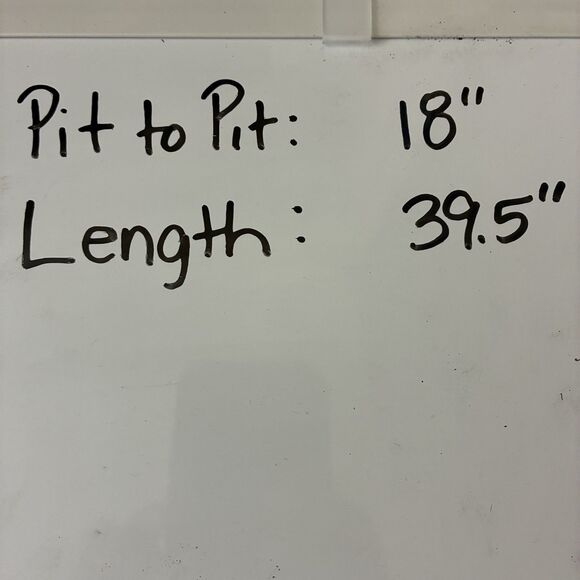 Pit to Pit: 18"
Length: 39.5"